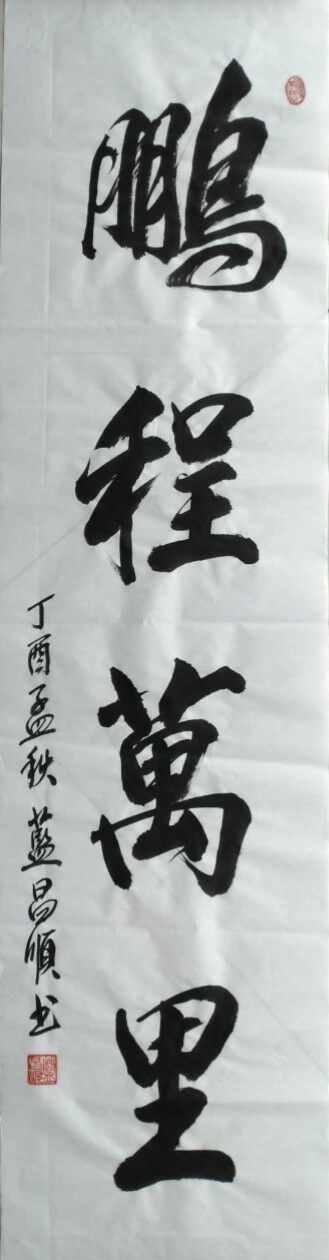 鵬程萬里
丁酉孟秋 藍昌順书